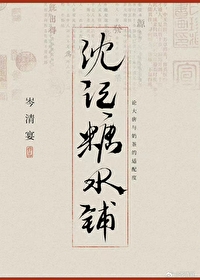 沈记糖水铺
论大唐与奶茶的适配度
岑清宴